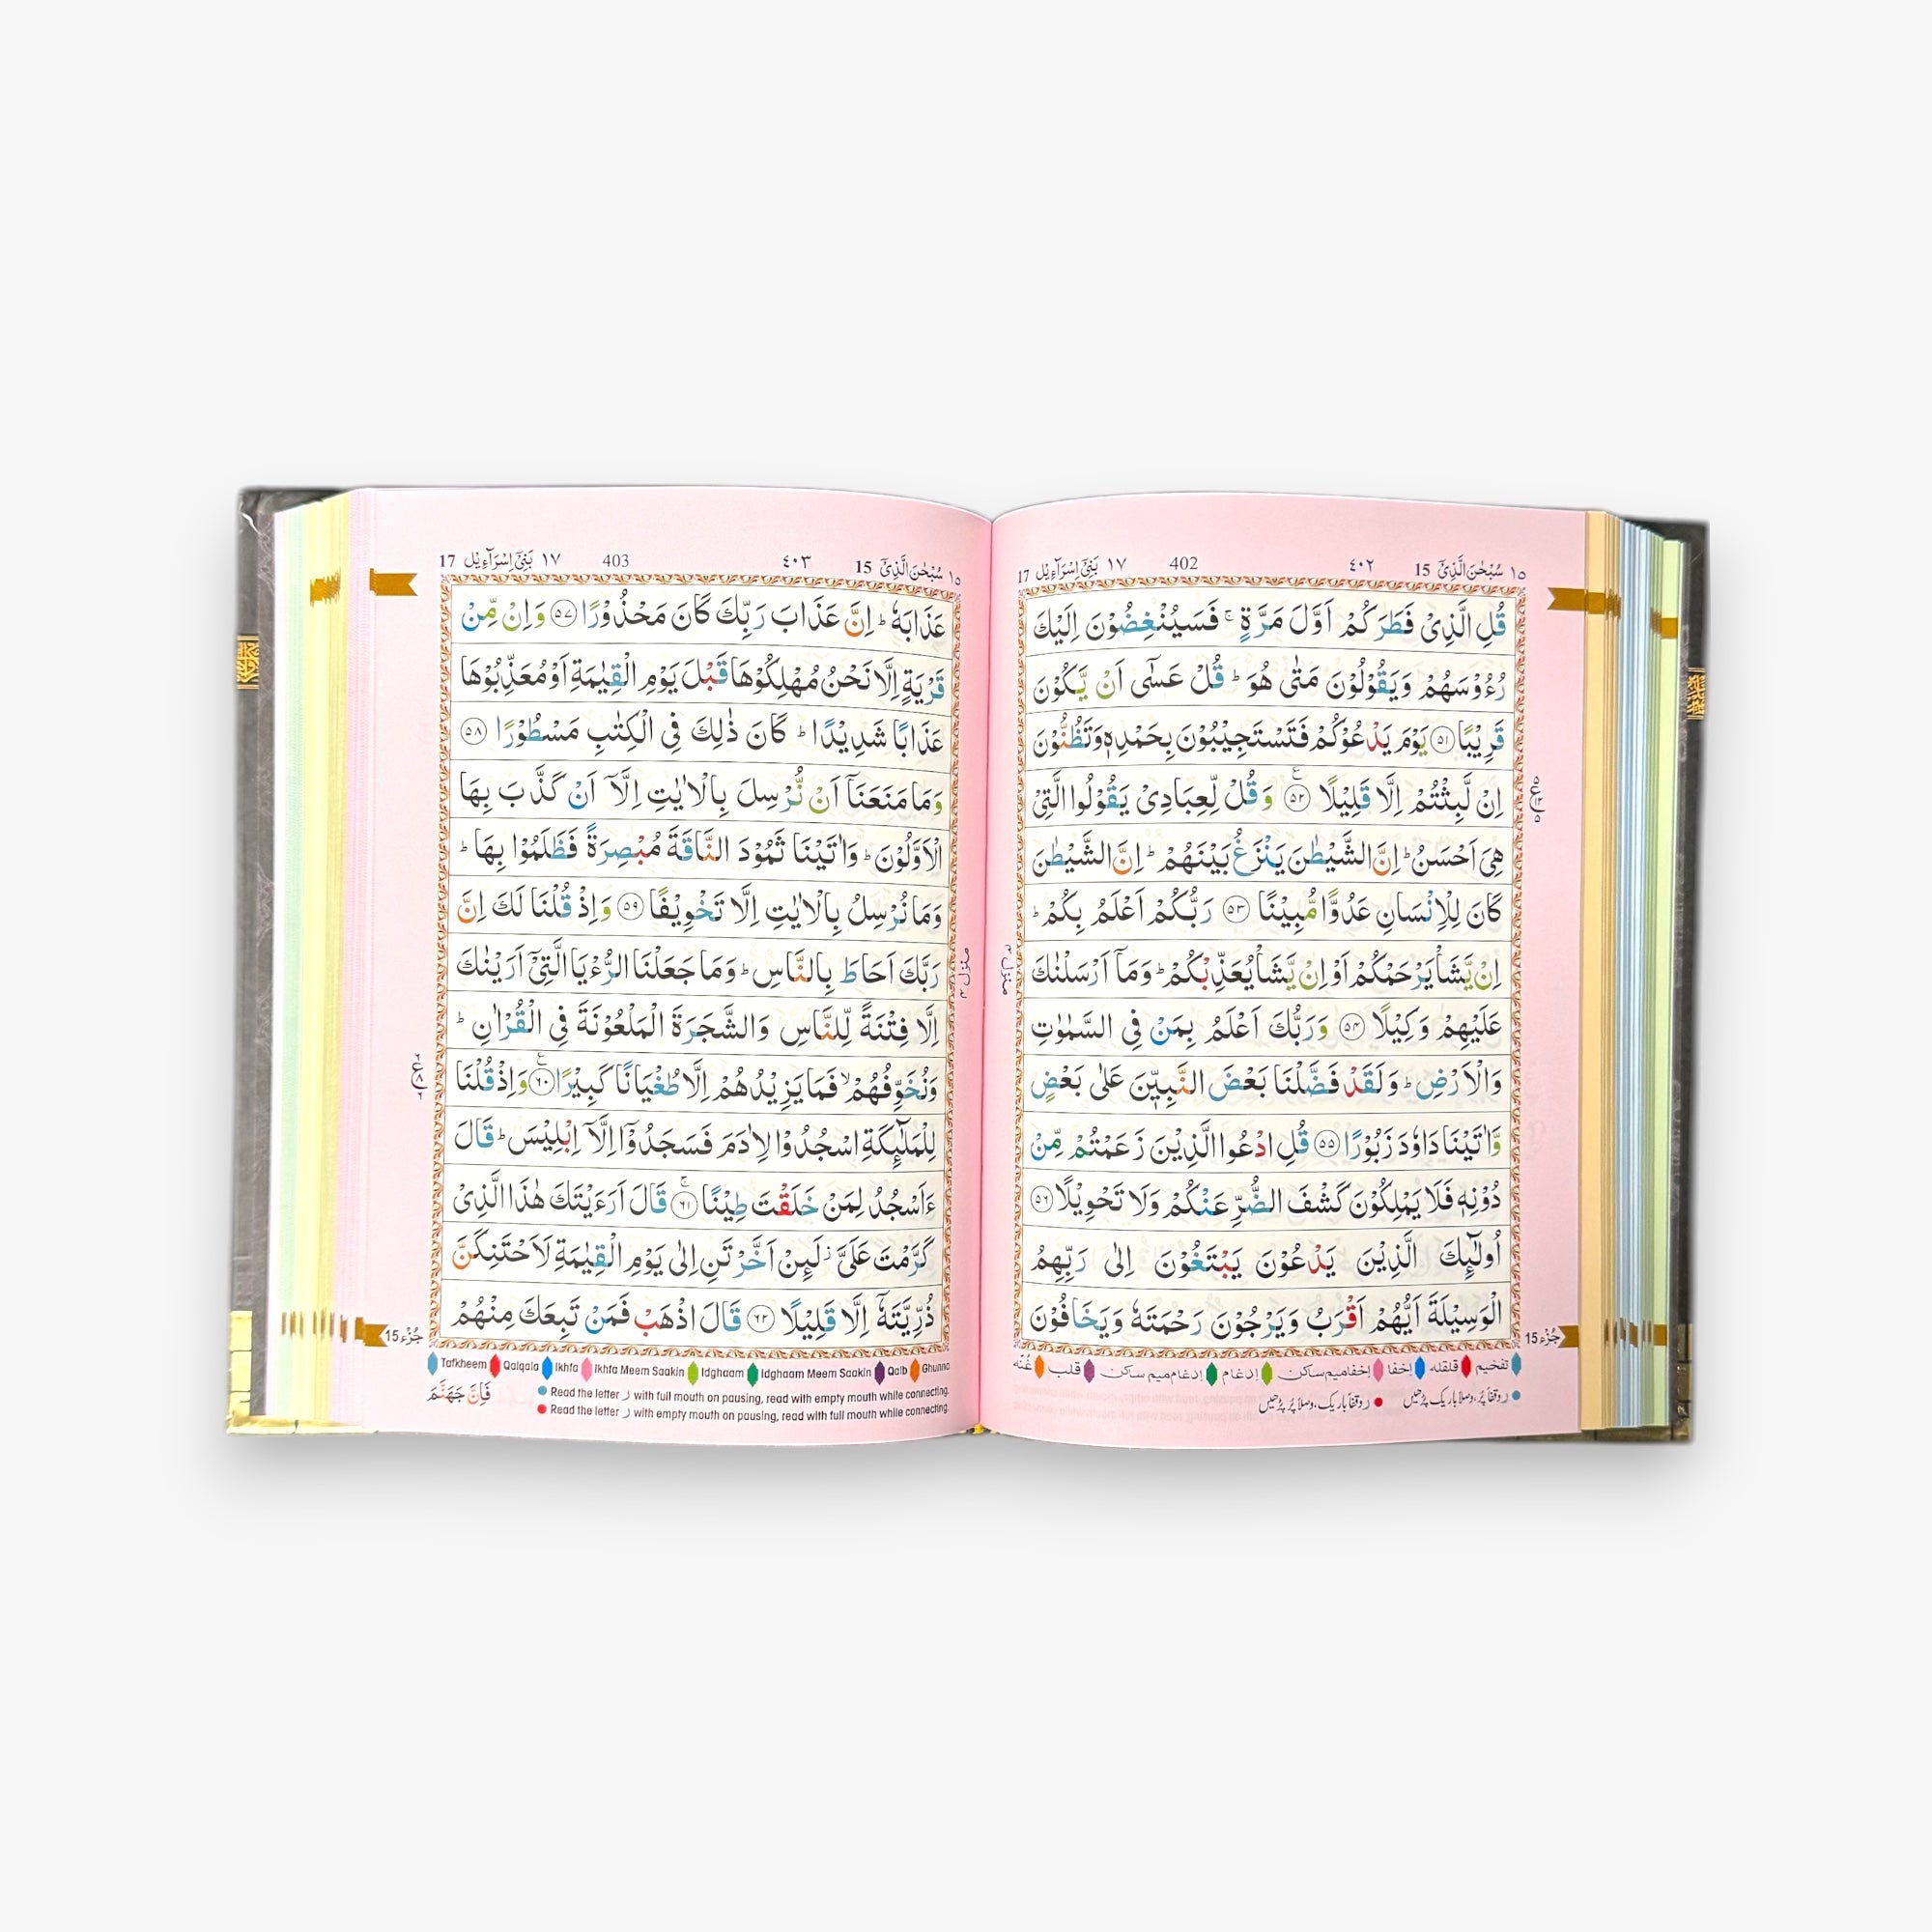 ١٥ سُبْحٰنَ الَّذِیْۤ 15 ٤٠٢ 402 ١٧ بَنِیْۤ اِسْرَآءِیْل 17
قُلِ الَّذِیْ فَطَرَكُمْ اَوَّلَ مَرَّةٍ ۚ فَسَیُنْغِضُوْنَ اِلَیْكَ
رُءُوْسَهُمْ وَیَقُوْلُوْنَ مَتٰی هُوَ ؕ قُلْ عَسٰۤی اَنْ یَّكُوْنَ
قَرِیْبًا ﴿٥١﴾ یَوْمَ یَدْعُوْكُمْ فَتَسْتَجِیْبُوْنَ بِحَمْدِهٖ وَتَظُنُّوْنَ
اِنْ لَّبِثْتُمْ اِلَّا قَلِیْلًا ﴿٥٢﴾ وَقُلْ لِّعِبَادِیْ یَقُوْلُوا الَّتِیْ
هِیَ اَحْسَنُ ؕ اِنَّ الشَّیْطٰنَ یَنْزَغُ بَیْنَهُمْ ؕ اِنَّ الشَّیْطٰنَ
كَانَ لِلْاِنْسَانِ عَدُوًّا مُّبِیْنًا ﴿٥٣﴾ رَبُّكُمْ اَعْلَمُ بِكُمْ ؕ
اِنْ یَّشَاْ یَرْحَمْكُمْ اَوْ اِنْ یَّشَاْ یُعَذِّبْكُمْ ؕ وَمَاۤ اَرْسَلْنٰكَ
عَلَیْهِمْ وَكِیْلًا ﴿٥٤﴾ وَرَبُّكَ اَعْلَمُ بِمَنْ فِی السَّمٰوٰتِ
وَالْاَرْضِ ؕ وَلَقَدْ فَضَّلْنَا بَعْضَ النَّبِیّٖنَ عَلٰی بَعْضٍ
وَّاٰتَیْنَا دَاوٗدَ زَبُوْرًا ﴿٥٥﴾ قُلِ ادْعُوا الَّذِیْنَ زَعَمْتُمْ مِّنْ
دُوْنِهٖ فَلَا یَمْلِكُوْنَ كَشْفَ الضُّرِّ عَنْكُمْ وَلَا تَحْوِیْلًا ﴿٥٦﴾
اُولٰٓئِكَ الَّذِیْنَ یَدْعُوْنَ یَبْتَغُوْنَ اِلٰی رَبِّهِمُ
الْوَسِیْلَةَ اَیُّهُمْ اَقْرَبُ وَیَرْجُوْنَ رَحْمَتَهٗ وَیَخَافُوْنَ
جُزْء 15
تفخیم قلقله اِخفا اِخفامیم ساکن اِدغام اِدغام میم ساکن قلب غُنّه
ر وقفًا پُر، وصلًا باریک پڑھیں ر وقفًا باریک، وصلًا پُر پڑھیں
منزل ٤
١٥ سُبْحٰنَ الَّذِیْۤ 15 ٤٠٣ 403 ١٧ بَنِیْۤ اِسْرَآءِیْل 17
عَذَابَهٗ ؕ اِنَّ عَذَابَ رَبِّكَ كَانَ مَحْذُوْرًا ﴿٥٧﴾ وَاِنْ مِّنْ
قَرْیَةٍ اِلَّا نَحْنُ مُهْلِكُوْهَا قَبْلَ یَوْمِ الْقِیٰمَةِ اَوْ مُعَذِّبُوْهَا
عَذَابًا شَدِیْدًا ؕ كَانَ ذٰلِكَ فِی الْكِتٰبِ مَسْطُوْرًا ﴿٥٨﴾
وَمَا مَنَعَنَاۤ اَنْ نُّرْسِلَ بِالْاٰیٰتِ اِلَّاۤ اَنْ كَذَّبَ بِهَا
الْاَوَّلُوْنَ ؕ وَاٰتَیْنَا ثَمُوْدَ النَّاقَةَ مُبْصِرَةً فَظَلَمُوْا بِهَا ؕ
وَمَا نُرْسِلُ بِالْاٰیٰتِ اِلَّا تَخْوِیْفًا ﴿٥٩﴾ وَاِذْ قُلْنَا لَكَ اِنَّ
رَبَّكَ اَحَاطَ بِالنَّاسِ ؕ وَمَا جَعَلْنَا الرُّءْیَا الَّتِیْۤ اَرَیْنٰكَ
اِلَّا فِتْنَةً لِّلنَّاسِ وَالشَّجَرَةَ الْمَلْعُوْنَةَ فِی الْقُرْاٰنِ ؕ
وَنُخَوِّفُهُمْ ۙ فَمَا یَزِیْدُهُمْ اِلَّا طُغْیَانًا كَبِیْرًا ﴿٦٠﴾ وَاِذْ قُلْنَا
لِلْمَلٰٓئِكَةِ اسْجُدُوْا لِاٰدَمَ فَسَجَدُوْۤا اِلَّاۤ اِبْلِیْسَ ؕ قَالَ
ءَاَسْجُدُ لِمَنْ خَلَقْتَ طِیْنًا ﴿٦١﴾ قَالَ اَرَءَیْتَكَ هٰذَا الَّذِیْ
كَرَّمْتَ عَلَیَّ ؗ لَئِنْ اَخَّرْتَنِ اِلٰی یَوْمِ الْقِیٰمَةِ لَاَحْتَنِكَنَّ
ذُرِّیَّتَهٗۤ اِلَّا قَلِیْلًا ﴿٦٢﴾ قَالَ اذْهَبْ فَمَنْ تَبِعَكَ مِنْهُمْ
جُزْء 15
Tafkheem Qalqala Ikhfa Ikhfa Meem Saakin Idghaam Idghaam Meem Saakin Qalb Ghunna
Read the letter ر with full mouth on pausing, read with empty mouth while connecting.
Read the letter ر with empty mouth on pausing, read with full mouth while connecting.
فَاِنَّ جَهَنَّمَ
منزل ٤